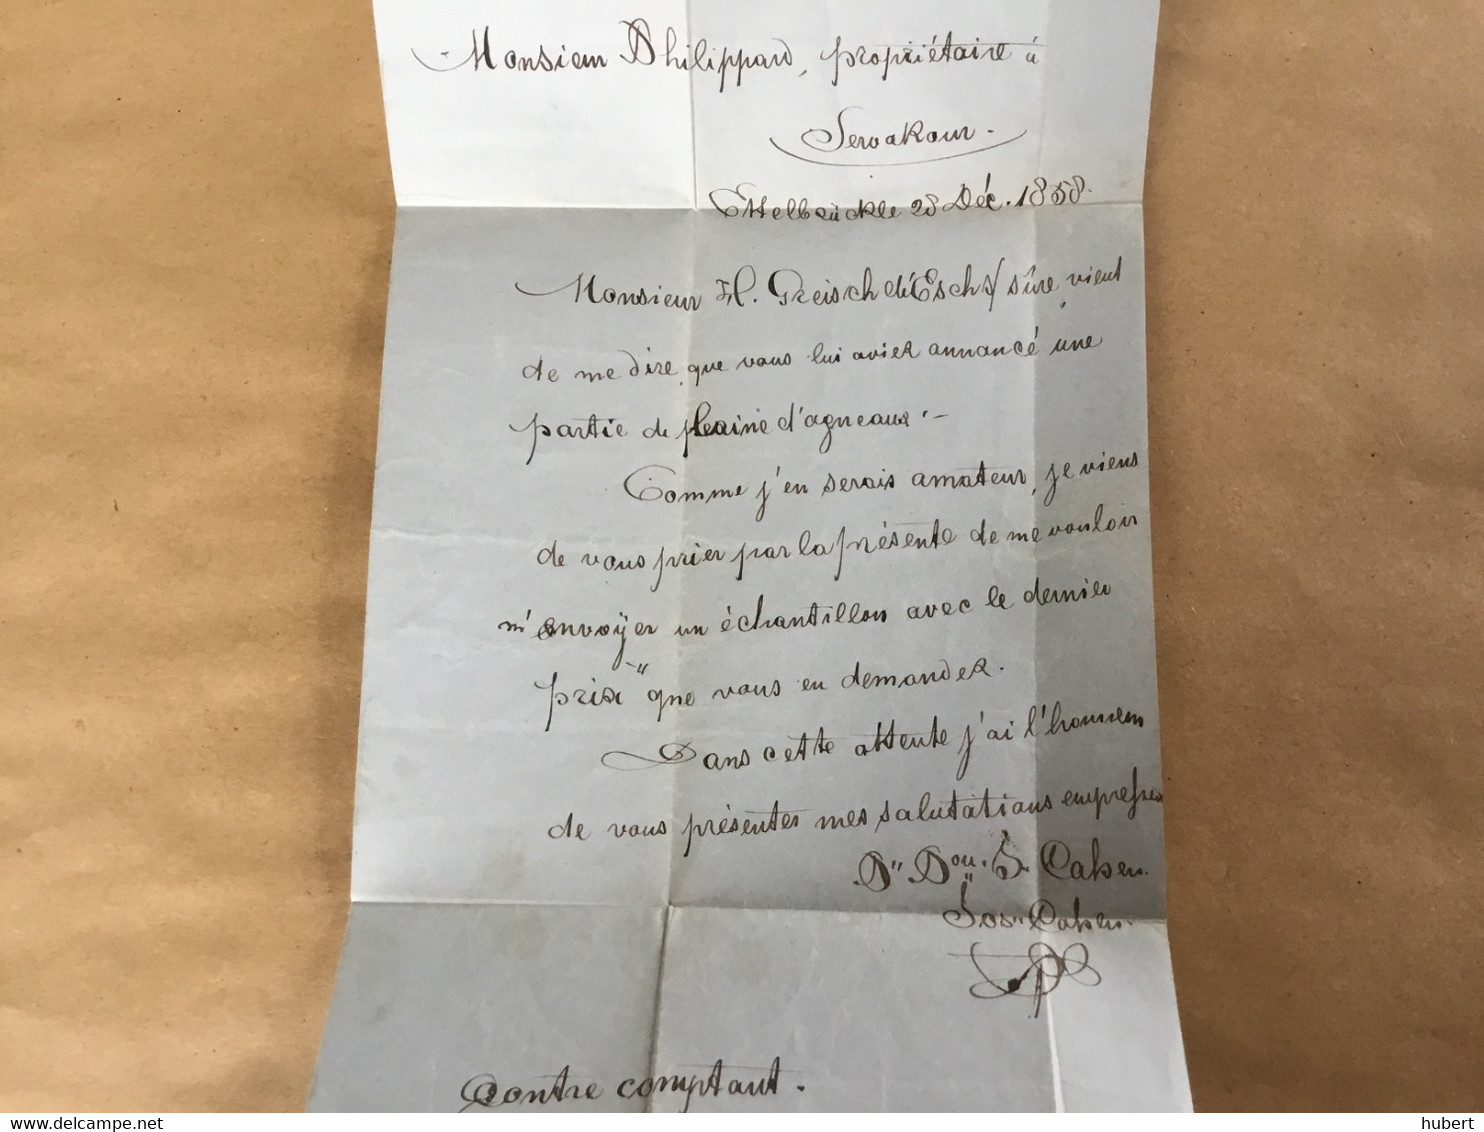 Monsieur Philippard, propriétaire à
Servakour.
Ettelbrückle 28 Déc. 1858.
Monsieur H. Greisch d'Esch s/ sûre, vient
de me dire, que vous lui aviez annancé une
partie de laine d'agneaux.-
Comme j'en serais amateur, je viens
de vous prier par la présente de me vouloir
m'envoÿer un échantillon avec le dernier
prix que vous en demandez.
Dans cette attente j'ai l'honneur
de vous présenter mes salutations empressées
S. Cahen.
Jos. Cahen.
Contre comptant.
delcampe.net
hubert